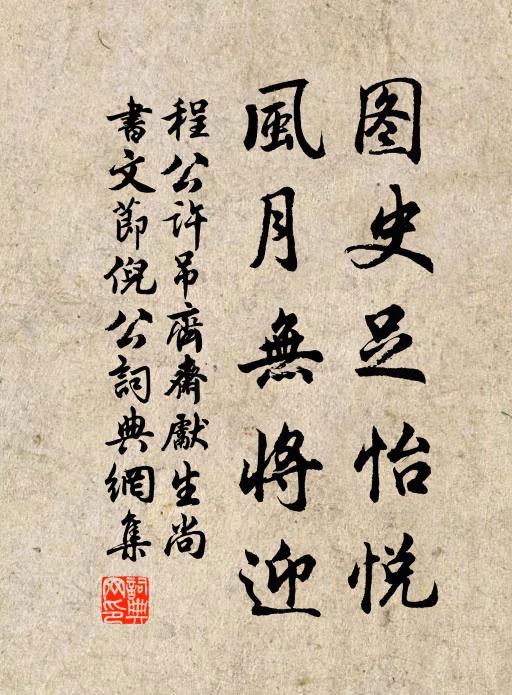 图史足怡悦
風月無將迎
程公許吊齊齋獻生尚
書文節倪公詞典網集
詞典网印